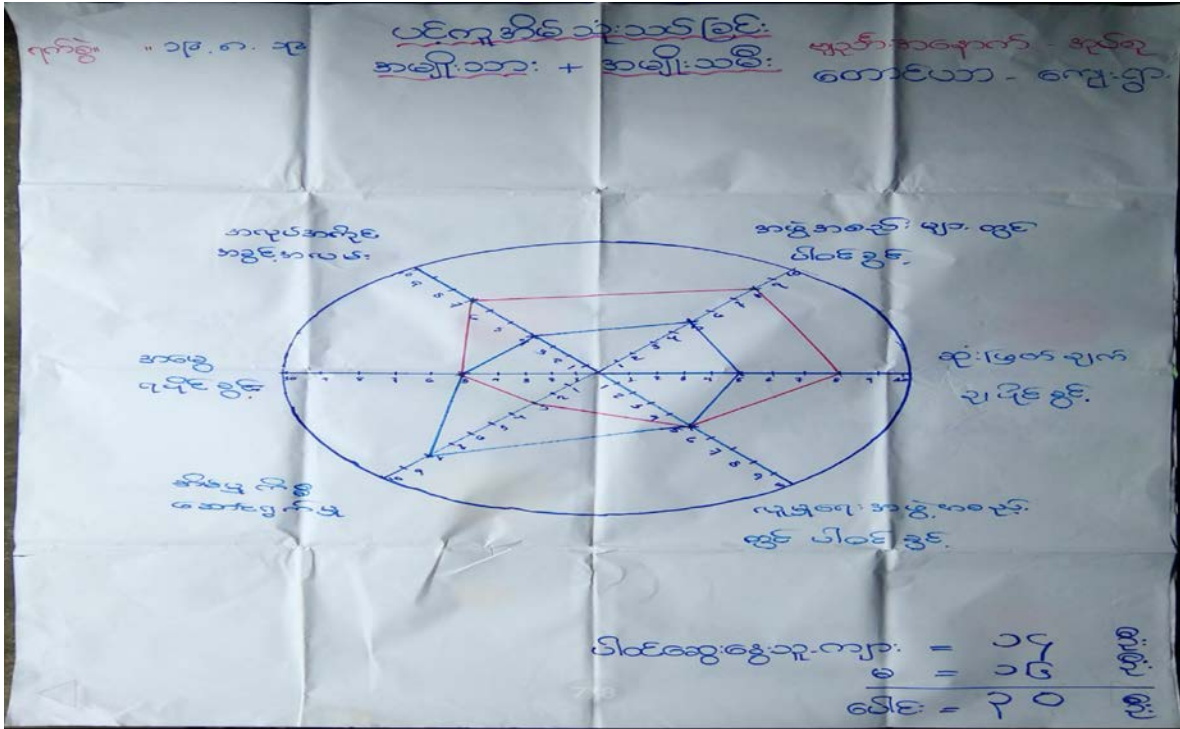 ရက်စွဲ။ ။ ၁၉.၈.၁၃
ပင့်ကူအိမ်သုံးသပ်ခြင်း
အမျိုးသား + အမျိုးသမီး
အနောက် - အုပ်စု
တောင်ယာ - ကျေးရွာ
အလုပ်အကိုင်
အခွင့်အလမ်း
အဖွဲ့အစည်းများတွင်
ပါဝင်ခွင့်
အမွေ
ရပိုင်ခွင့်
ဆုံးဖြတ်ချက်
ချပိုင်ခွင့်
အိမ်မှုကိစ္စ
ဆောင်ရွက်မှု
လူမှုရေးအဖွဲ့အစည်း
တွင် ပါဝင်ခွင့်
ပါဝင်ဆွေးနွေးသူ ကျား = ၁၄ ဦး
မ = ၁၆ ဦး
ပေါင်း = ၃၀ ဦး